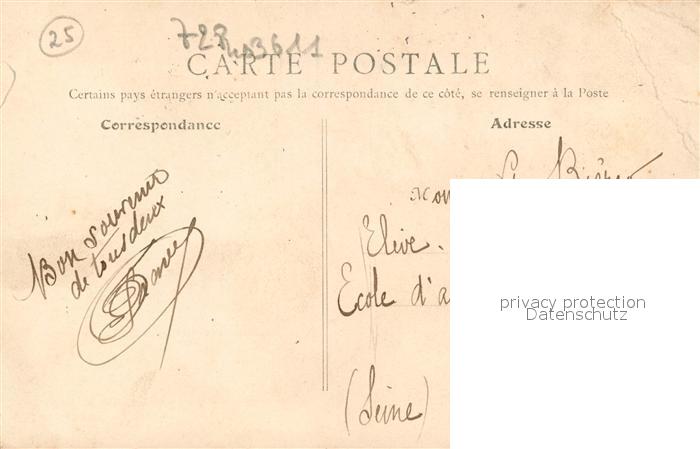 25
728
CARTE POSTALE
Certains pays étrangers n'acceptant pas la correspondance de ce côté, se renseigner à la Poste
Correspondance
Adresse
Bon souvenir
de tous deux
Mon
Elève
Ecole d'a
(Seine)
privacy protection
Datenschutz